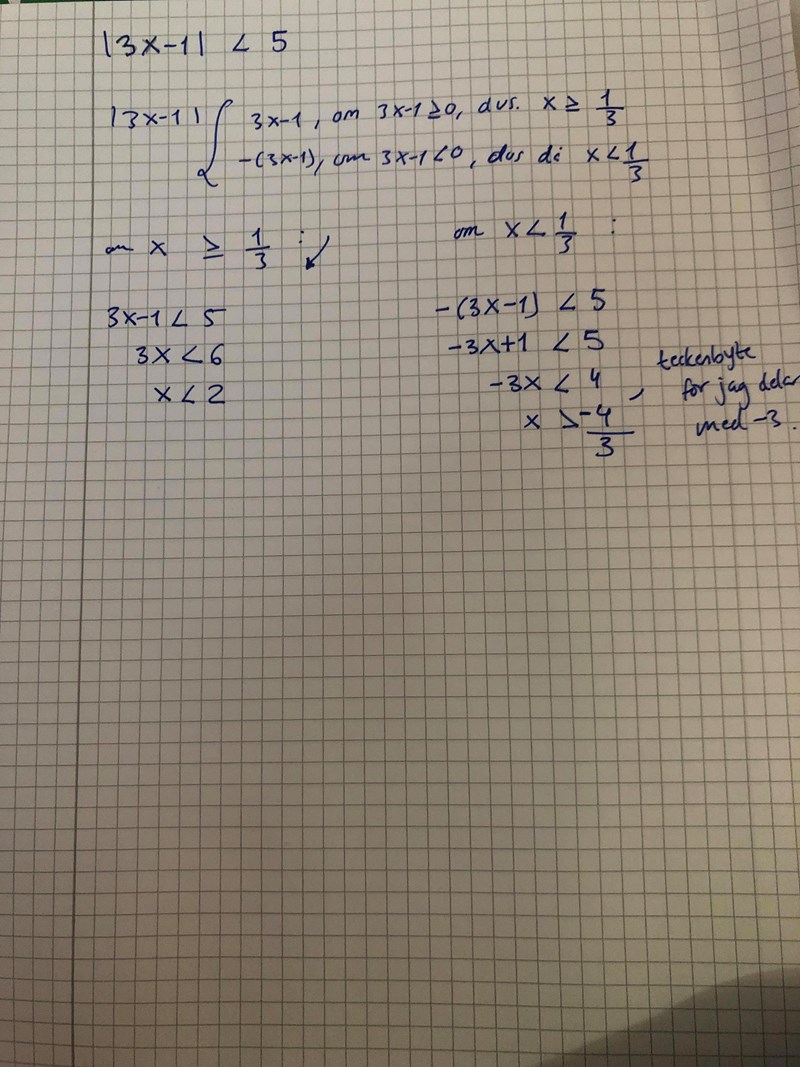 |3x-1| < 5
|3x-1| { 3x-1, om 3x-1≥0, dvs. x ≥ 1/3
-(3x-1), om 3x-1<0, dvs då x < 1/3
om x ≥ 1/3 :
3x-1 < 5
3x < 6
x < 2
om x < 1/3 :
-(3x-1) < 5
-3x+1 < 5
-3x < 4,
x > -4/3
teckenbyte
for jag delar
med -3.